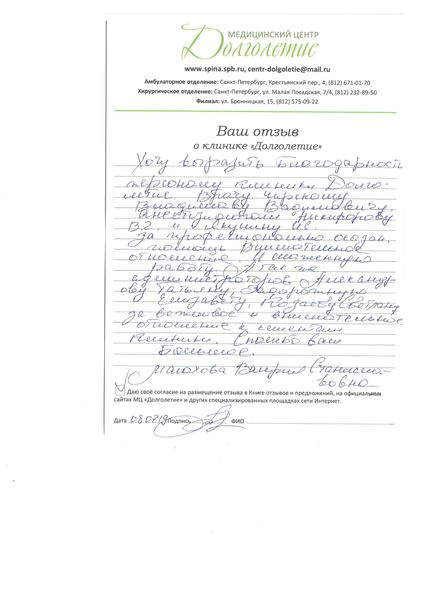 МЕДИЦИНСКИЙ ЦЕНТР
Долголетие
www.spina.spb.ru, centr-dolgoletie@mail.ru
Амбулаторное отделение: Санкт-Петербург, Крестьянский пер., 4, (812) 671-01-70
Хирургическое отделение: Санкт-Петербург, ул. Малая Посадская, 7/4, (812) 232-89-50
Филиал: ул. Бронницкая, 15, (812) 575-09-22
Ваш отзыв
о клинике «Долголетие»
Хочу выразить Благодарность
персоналу клиники Долго-
летие Врачу
Владиславу Вадимовичу,
анестезиологам Никифорову
В.Г. и
За профессионально оказан.
помощь Внимательное
отношение. И слаженную
работу. А так же
администраторов Александр
ову Татьяну, Задорожную
Елизавету, Козлову Светлану
за вежливое и внимательное
отношение к клиентам
Клиники. Спасибо вам
Большое.
Малахова Валерия Станисла-
вовна
Даю своё согласие на размещение отзыва в Книге отзывов и предложений, на официальных
сайтах МЦ «Долголетие» и других специализированных площадках сети Интернет.
Дата 08.07.19 Подпись ФИО